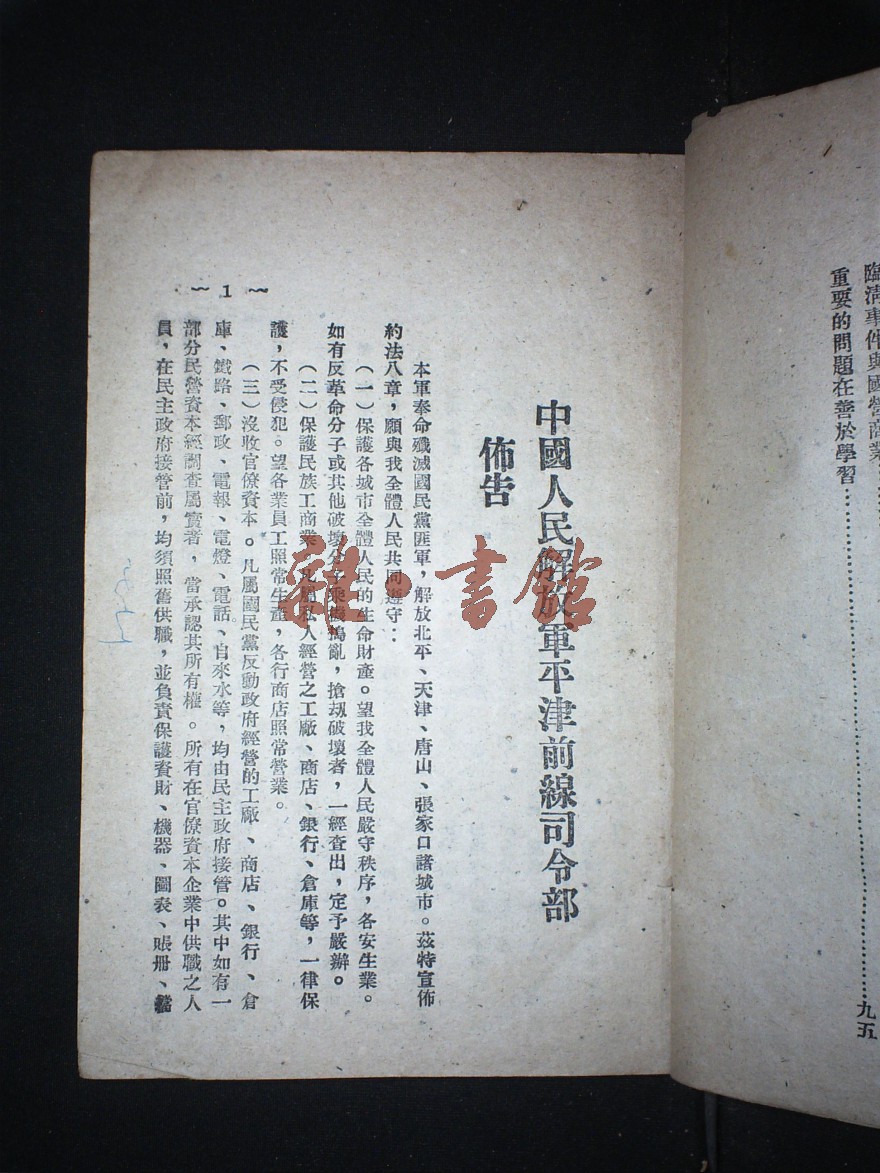 臨淸事件與國營商業
重要的問題在善於學習…………………………九五
中國人民解放軍平津前線司令部
佈告
本軍奉命殲滅國民黨匪軍,解放北平、天津、唐山、張家口諸城市。茲特宣佈
約法八章,願與我全體人民共同遵守:
(一)保護各城市全體人民的生命財產。望我全體人民嚴守秩序,各安生業。
如有反革命分子或其他破壞分子乘機搗亂,搶刼破壞者,一經查出,定予嚴辦。
(二)保護民族工商業。凡屬私人經營之工廠、商店、銀行、倉庫等,一律保
護,不受侵犯。望各業員工照常生產,各行商店照常營業。
(三)沒收官僚資本。凡屬國民黨反動政府經營的工廠、商店、銀行、倉
庫、鐵路、郵政、電報、電燈、電話、自來水等,均由民主政府接管。其中如有一
部分民營資本經調查屬實者,當承認其所有權。所有在官僚資本企業中供職之人
員,在民主政府接管前,均須照舊供職,並負責保護資財、機器、圖表、賬册、檔
~ 1 ~
雜·書館